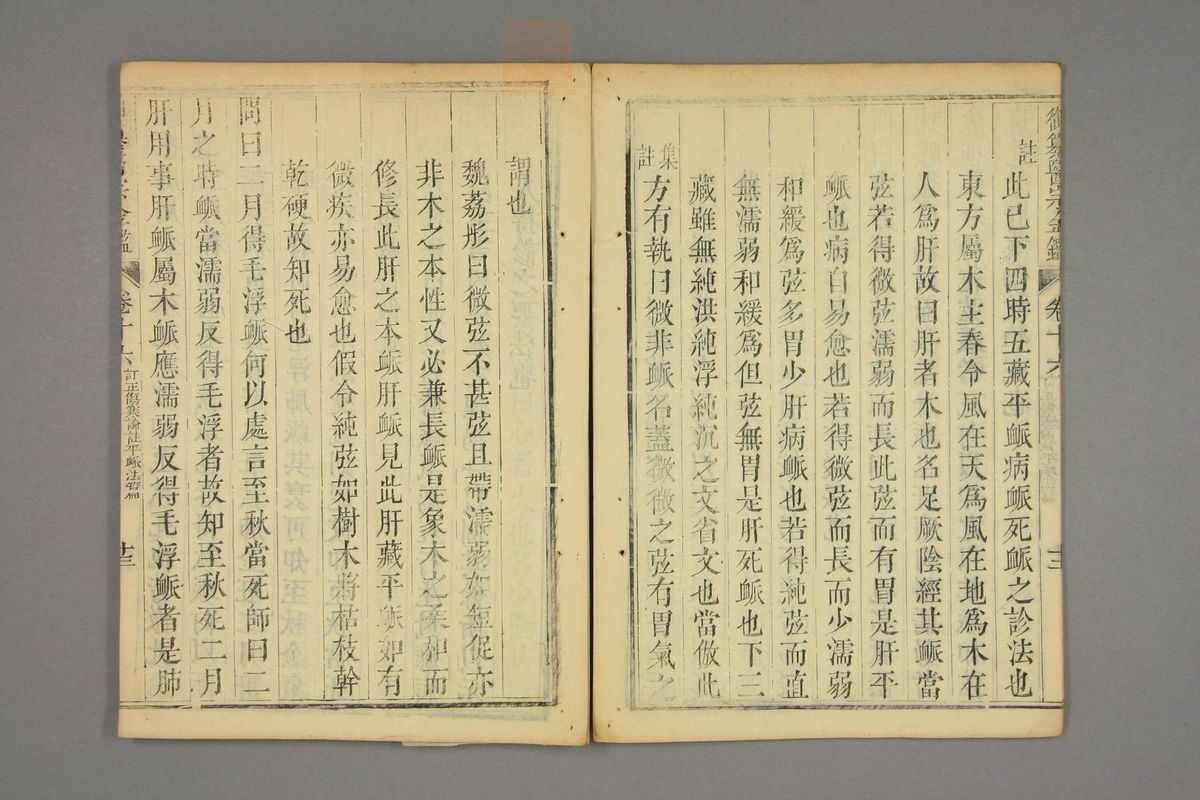 御纂醫宗金鑑 卷十六
註
此已下四時五藏平脈病脈死脈之診法也
東方屬木主春令風在天為風在地為木在
人為肝故曰肝者木也名足厥陰經其脈當
弦若得微弦濡弱而長此弦而有胃是肝平
脈也病自易愈也若得微弦而長而少濡弱
和緩為弦多胃少肝病脈也若得純弦而直
無濡弱和緩為但弦無胃是肝死脈也下三
藏雖無純洪純浮純沉之文省文也當倣此
集註
方有執曰微非脈名蓋微微之弦有胃氣之
謂也
魏荔彤曰微弦不甚弦且帶濡弱如短促亦
非木之本性又必兼長脈是象木之柔和而
修長此肝之本脈肝脈見此肝藏平脈如有
微疾亦易愈也假令純弦如樹木將枯枝幹
乾硬故知死也
問曰二月得毛浮脈何以處言至秋當死師曰二
月之時脈當濡弱反得毛浮者故知至秋死二月
肝用事肝脈屬木脈應濡弱反得毛浮脈者是肺
宗金鑑 卷十六 訂正傷寒論註平脈法篇 廿三